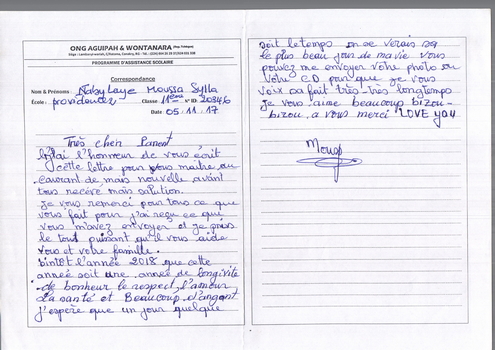 ONG AGUIPAH & WONTANARA (Rep. Guinée)
PROGRAMME D'ASSISTANCE SCOLAIRE
Correspondance
Nom & Prénoms : Naby Laye Moussa Sylla
École : providence Classe 11ème N° ID: 20846
Date 05.11.17
Très cher Parent
J'ai l'honneur de vous écrit
cette lettre pour vous maitre au
courant de mais nouvelle avant
tous recevé mais salution.
je vous remerci pour tous ce que
vous fait pour j'ai reçu ce que
vous m'avez envoyer et je prie
le tout puissant qu'il vous aide
vous et votre famille.
bintôt l'année 2018 que cette
année soit une année de longivité
de bonheur le respect, l'amour
la santé et Beaucoup d'argent
j'espère que un jour quelque
soit le temps on se verais sa
le plus beau jour de ma vie vous
pouvez me envoyer votre photo ou
votre CD pour que je vous
vois sa fait très-très longtemps
je vous aime beaucoup bizou-
bizou a vous merci LOVE YOU
Mouss